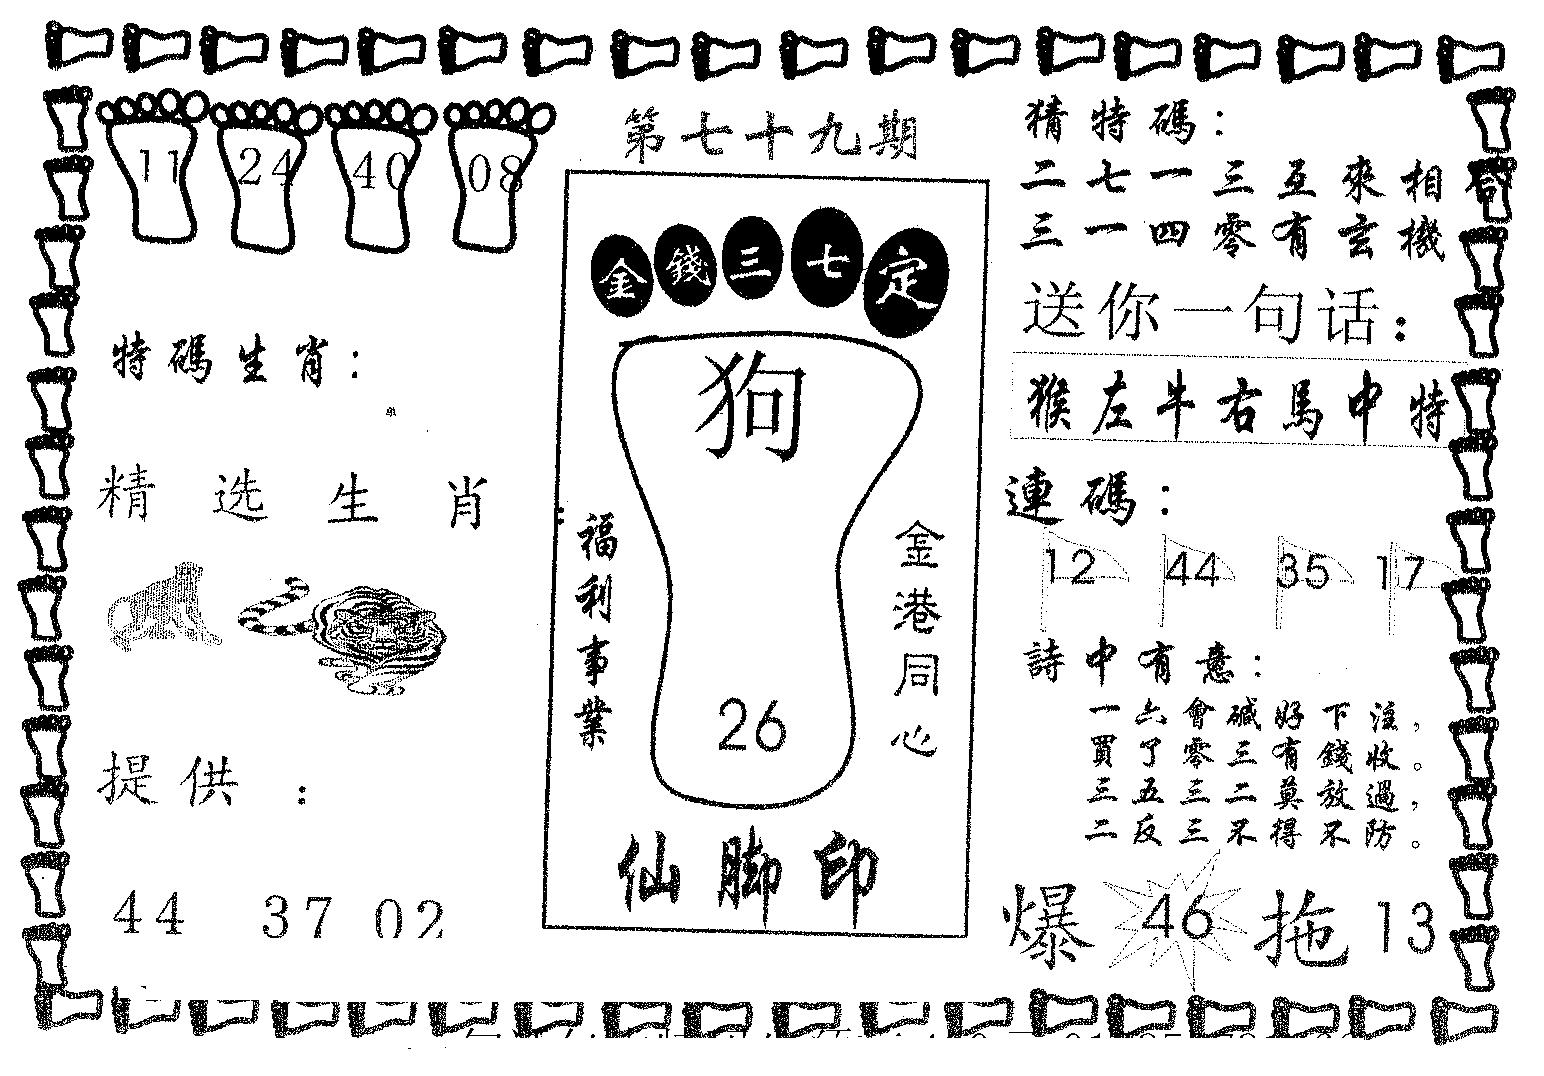 第七十九期
11 24 40 08
特碼生肖：
单
精选生肖：
提供：
44 37 02
金錢三七定
狗
26
福利事業
金港同心
仙脚印
猜特碼：
二七一三互來相
三一四零有玄機
送你一句话：
猴左牛右馬中特
連碼：
12 44 35 17
詩中有意：
一六會碱好下注，
買了零三有錢收。
三五三二莫放過，
二反三不得不防。
爆 46 拖 13